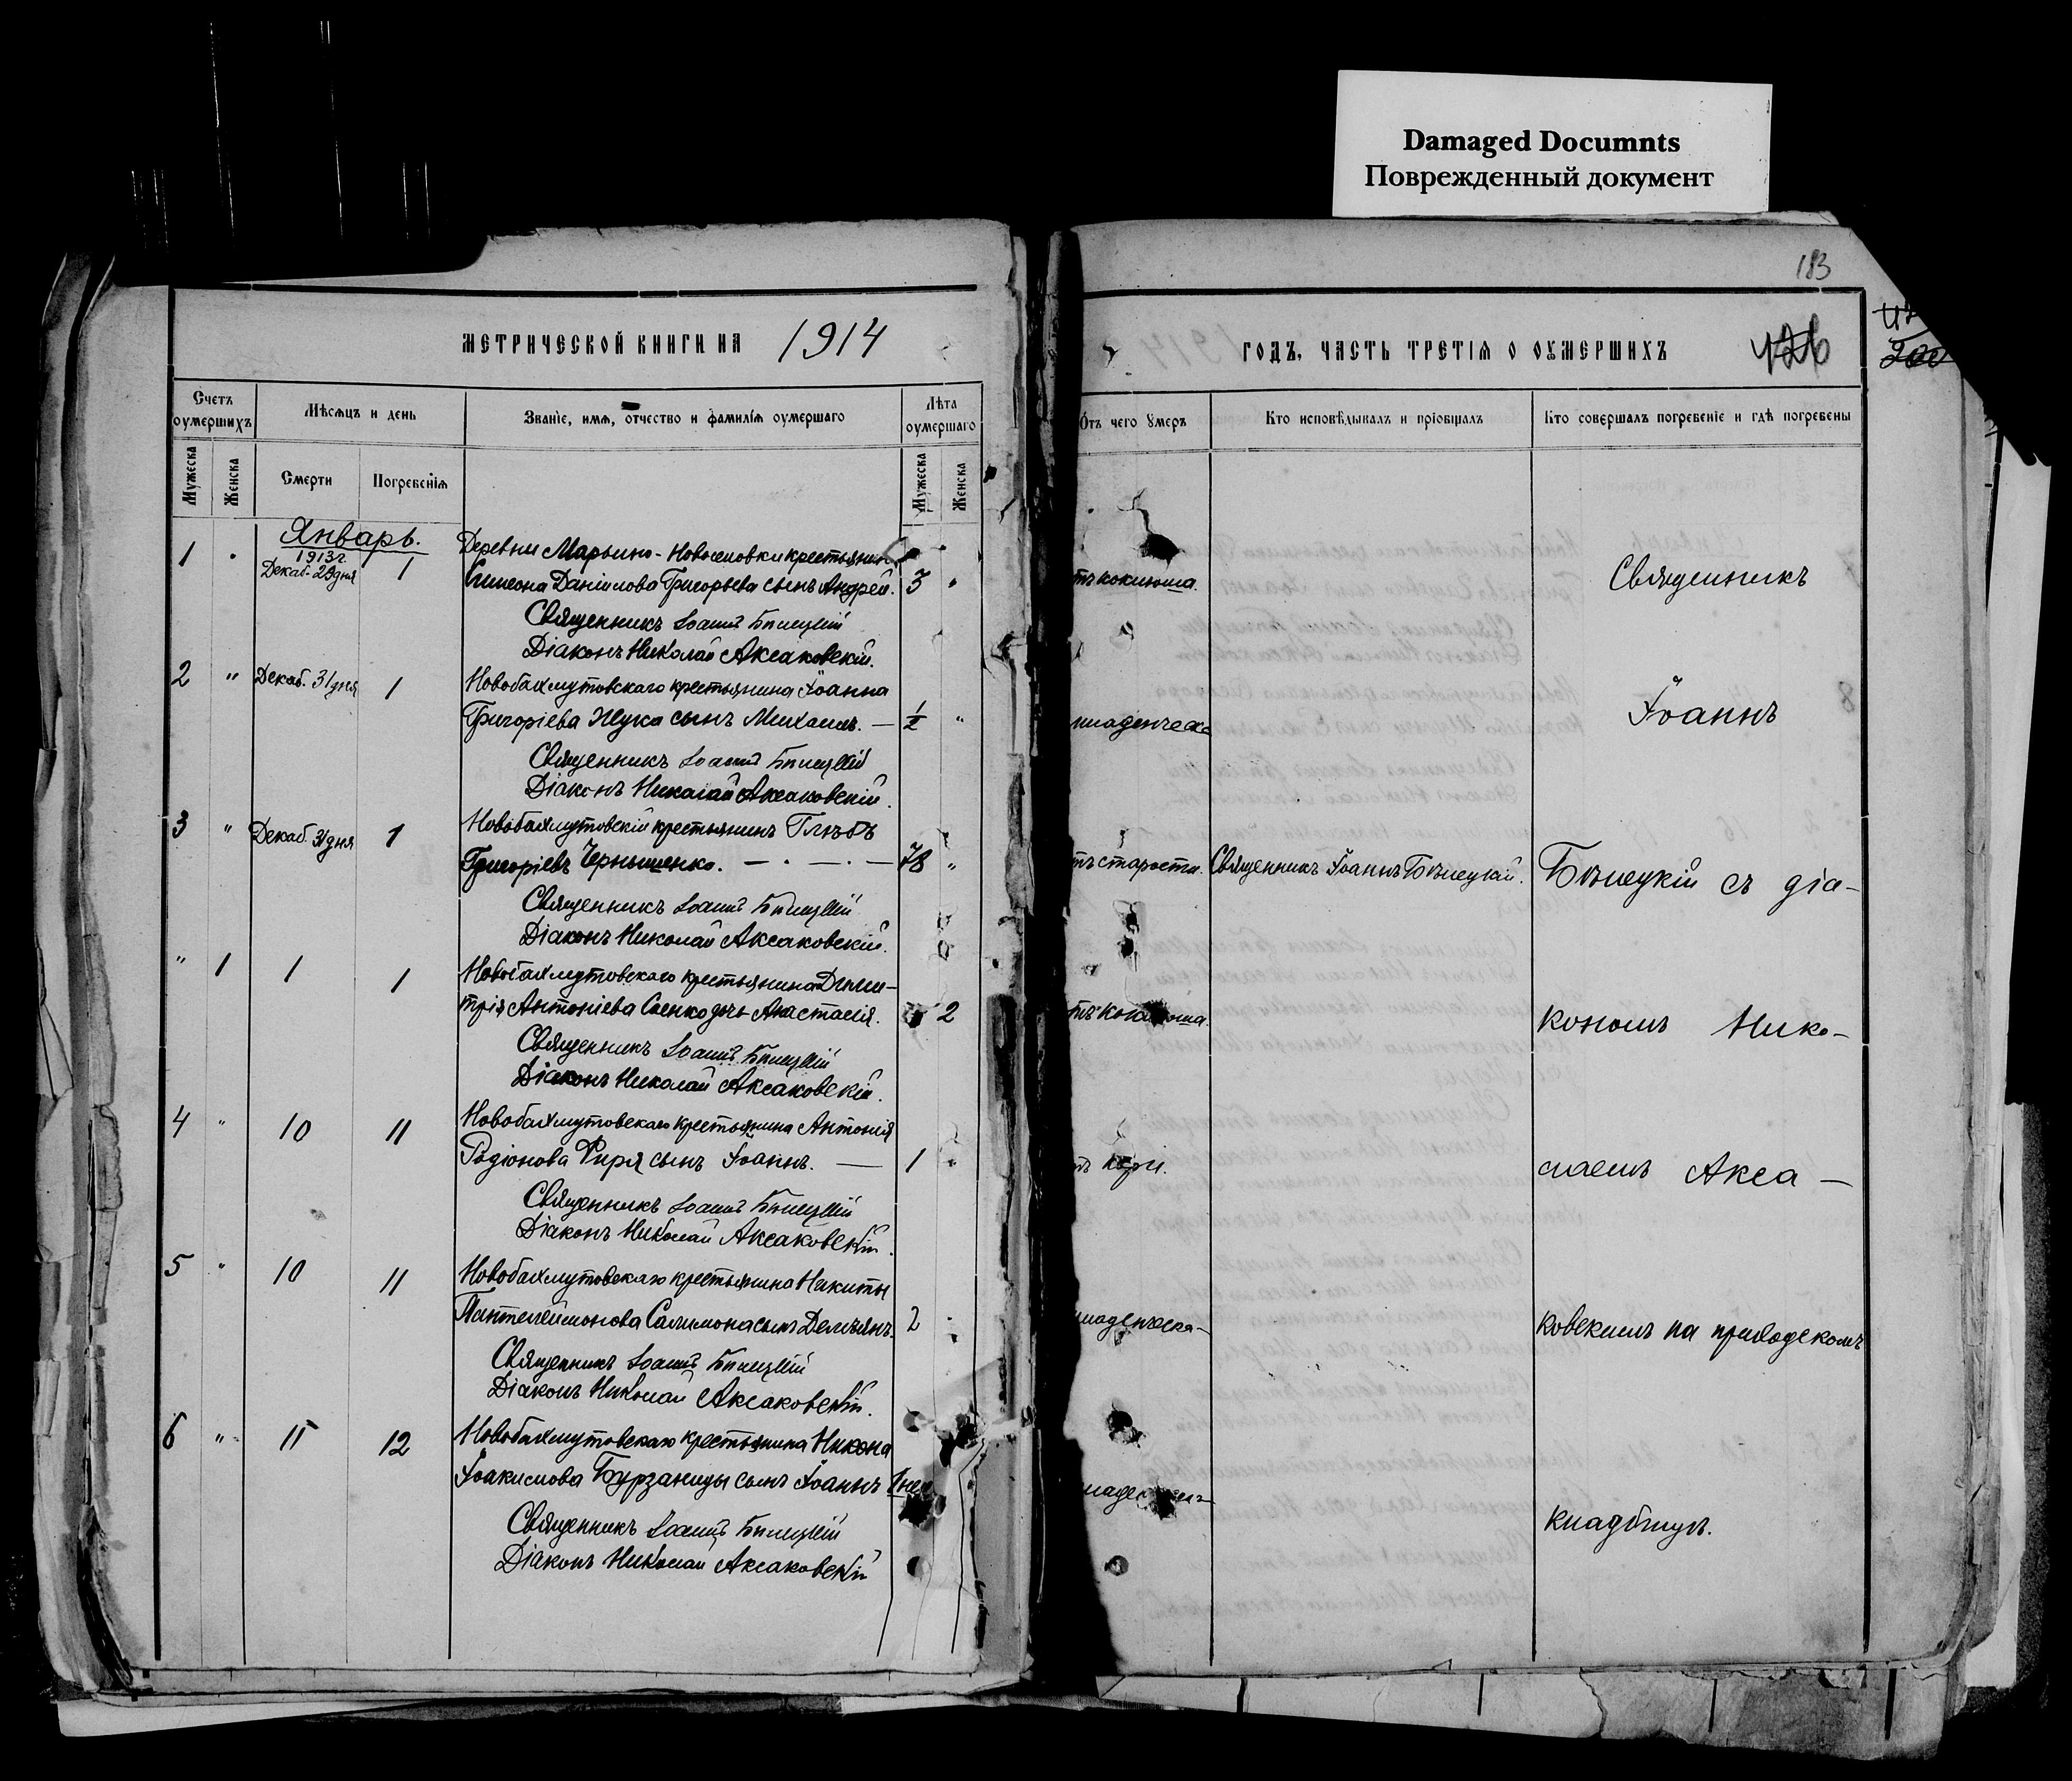 Damaged Documnts
Поврежденный документ
183
МЕТРИЧЕСКОЙ КНИГИ НА 1914
ГОДЪ, ЧАСТЬ ТРЕТІЯ О ОУМЕРШИХЪ
Счетъ оумершихъ
Мѣсяцъ и день
Званіе, имя, отчество и фамилія оумершаго
Лѣта оумершаго
Отъ чего умеръ
Кто исповѣдывалъ и пріобщалъ
Кто совершалъ погребеніе и гдѣ погребены
Мужеска
Женска
Смерти
Погребенія
Мужеска
Женска
Январь.
1913 г.
1 Декаб. 29 дня 1 Деревни Марьино-Новоселовки крестьянина
Симеона Даніилова Григорьева сынъ Андрей. 3 коклюша.
Священникъ Іоаннъ Бѣлецкій
Діаконъ Николай Аксаковскій.
2 " Декаб. 31 дня 1 Новобахмутовскаго крестьянина Іоанна
Григоріева Жука сынъ Михаилъ. — 1/2 "
Священникъ Іоаннъ Бѣлецкій
Діаконъ Николай Аксаковскій.
3 " Декаб. 31 дня 1 Новобахмутовскій крестьянинъ Глѣбъ
Григоріевъ Чернышенко. — 78 " старости. Священникъ Іоаннъ Бѣлецкій.
Священникъ Іоаннъ Бѣлецкій
Діаконъ Николай Аксаковскій.
" 1 1 1 Новобахмутовскаго крестьянина Дими-
трія Антоніева дочь Анастасія. 2
Священникъ Іоаннъ Бѣлецкій
Діаконъ Николай Аксаковскій.
4 " 10 11 Новобахмутовскаго крестьянина Антонія
Родіонова сынъ Іоаннъ. — 1 " кори.
Священникъ Іоаннъ Бѣлецкій
Діаконъ Николай Аксаковскій.
5 " 10 11 Новобахмутовскаго крестьянина Никиты
Пантелеймонова Салимона сынъ Демьянъ. 2
Священникъ Іоаннъ Бѣлецкій
Діаконъ Николай Аксаковскій.
6 " 11 12 Новобахмутовскаго крестьянина Никона
Іоакимова сынъ Іоаннъ
Священникъ Іоаннъ Бѣлецкій
Діаконъ Николай Аксаковскій
Священникъ
Іоаннъ
Бѣлецкій съ діа-
кономъ Нико-
лаемъ Акса —
ковскимъ на приходскомъ
кладбищѣ.